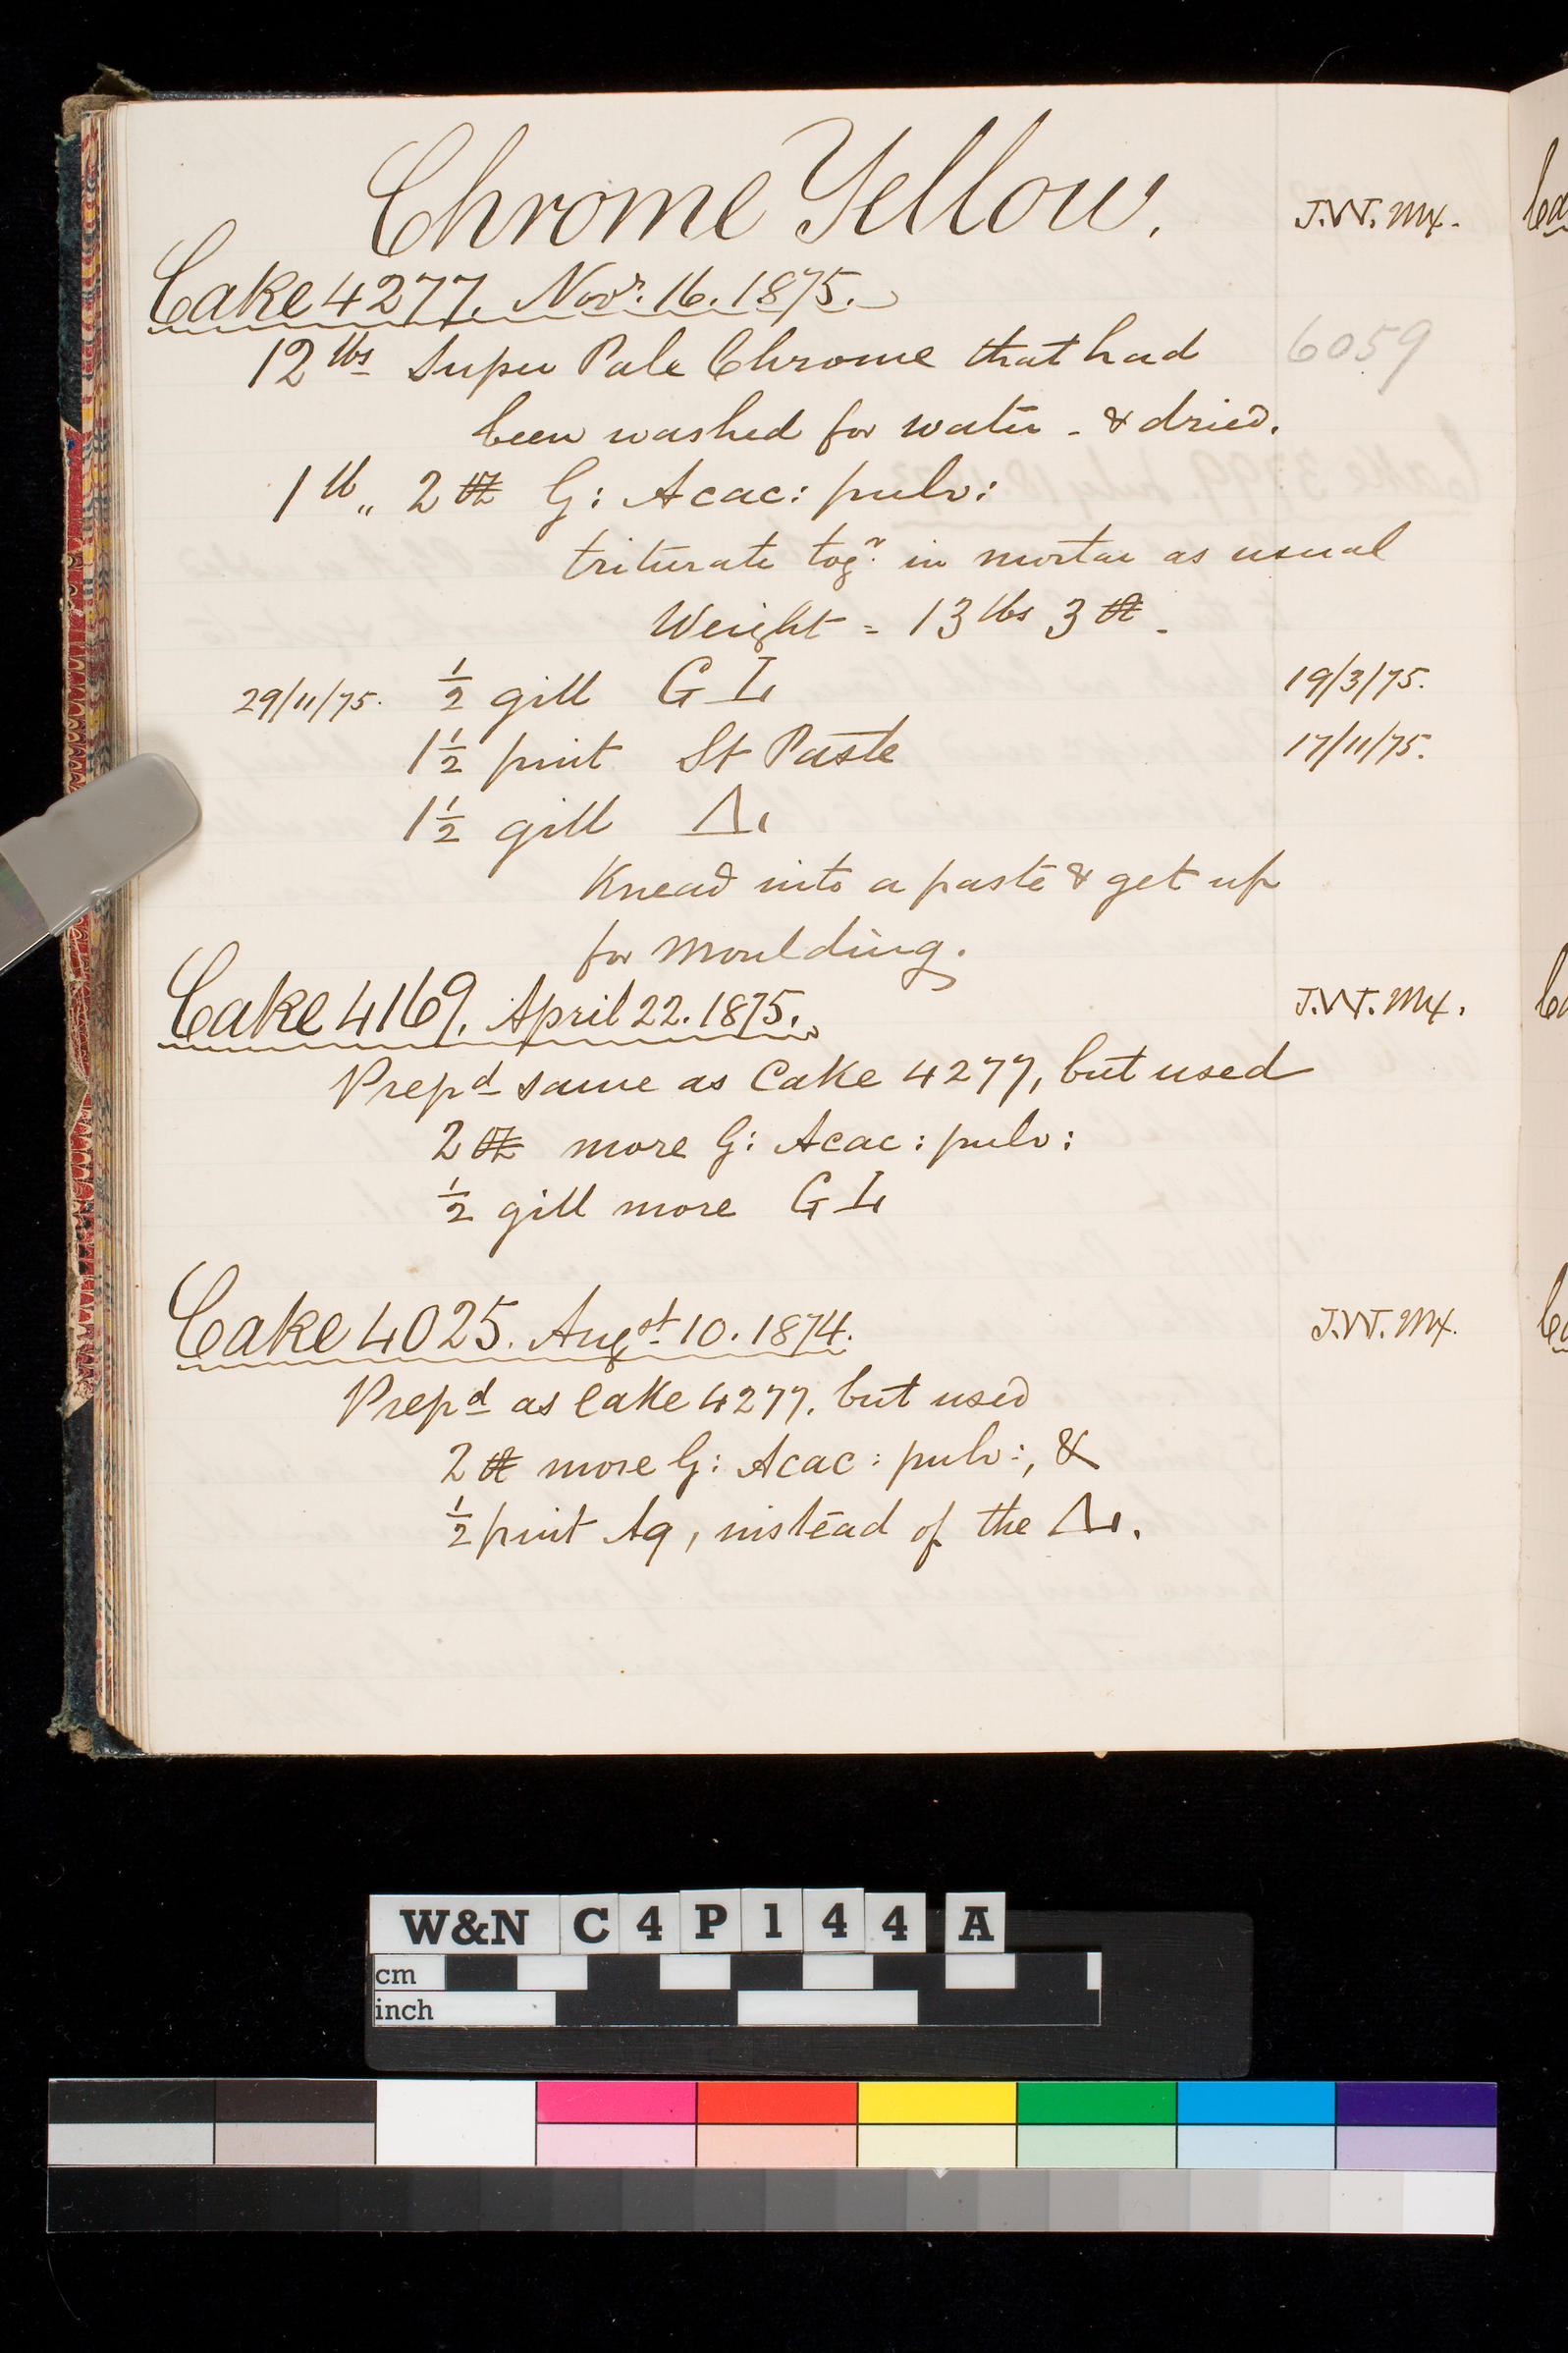 Chrome Yellow.
J.W. Mx.
Cake 4277. Novr. 16. 1875.
12 lbs Super Pale Chrome that had
6059
been washed for water - & dried.
1 lb „ 2 oz G: Acac: pulv:
triturate togr. in mortar as usual
Weight = 13 lbs 3 oz -
29/11/75. ½ gill G L 19/3/75.
1½ pint St Paste 17/11/75.
1½ gill
Knead into a paste & get up
for moulding.
Cake 4169. April 22. 1875. J.W. Mx.
Prepd same as Cake 4277, but used
2 oz more G: Acac: pulv:
½ gill more G L
Cake 4025. Augst 10. 1874. J.W. Mx.
Prepd as Cake 4277. but used
2 oz more G: Acac: pulv:, &
½ pint Aq, instead of the
W&N C4P144A
cm
inch